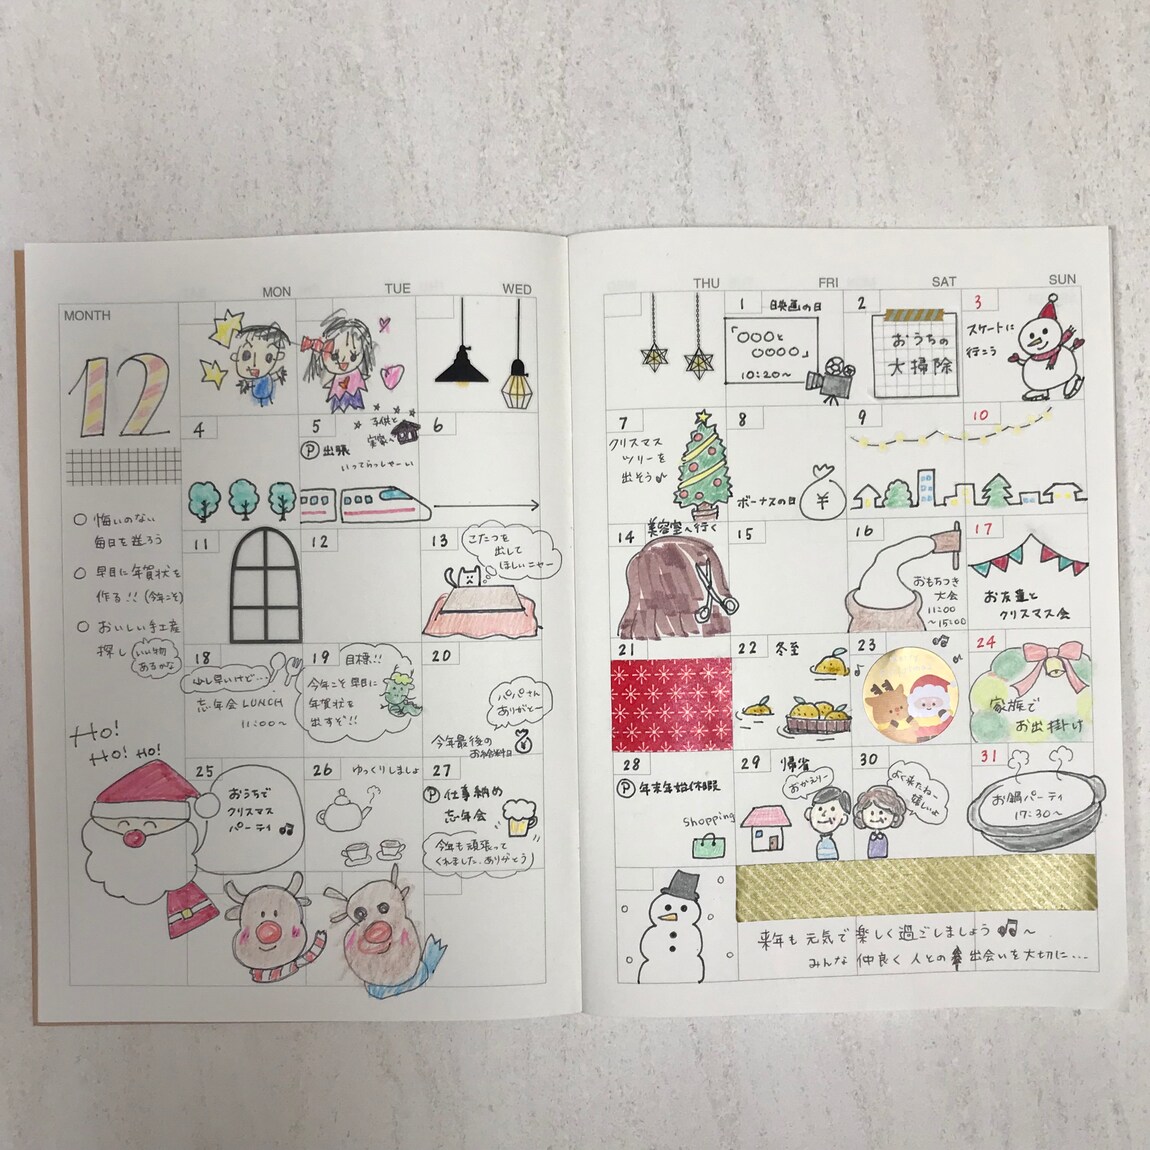 MON
TUE
WED
THU
FRI
SAT
SUN
MONTH
12
悔いのない
毎日を送ろう
早目に年賀状を
作る!!(今年こそ)
おいしい手土産
探し
いい物
あるかな
Ho!
Ho! Ho!
1
映画の日
「○○○と
○○○○」
10:20～
2
おうちの
大掃除
3
スケートに
行こう
4
5
子供と
実家へ
P 出張
いってらっしゃーい
6
7
クリスマス
ツリーを
出そう♪
8
ボーナスの日
¥
9
10
11
12
13
こたつを
出して
ほしいニャー
14
美容室へ行く
15
16
おもちつき
大会
11:00
～15:00
17
お友達と
クリスマス会
18
少し早いけど…
忘年会LUNCH
11:00～
19
目標!!
今年こそ早目に
年賀状を
出すぞ!!
20
パパさん
ありがとー
今年最後の
お給料日
¥
21
22
冬至
23
24
家族で
お出掛け
25
おうちで
クリスマス
パーティ♫
26
ゆっくりしましょ
27
P 仕事納め
忘年会
今年も頑張って
くれました。ありがとう
28
P 年末年始休暇
shopping
29
帰省
おかえりー
30
よく来たね～
嬉しいよ
31
お鍋パーティ
17:30～
来年も元気で楽しく過ごしましょう♫～
みんな仲良く人との出会いを大切に…